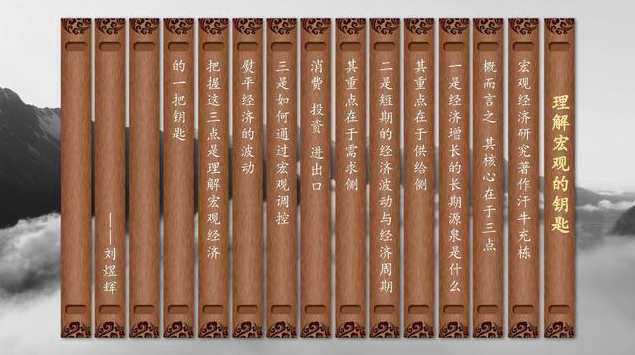 理解宏观的钥匙
宏观经济研究著作汗牛充栋
概而言之 其核心在于三点
一是经济增长的长期源泉是什么
其重点在于供给侧
二是短期的经济波动与经济周期
其重点在于需求侧
消费 投资 进出口
三是如何通过宏观调控
熨平经济的波动
把握这三点是理解宏观经济
的一把钥匙
——刘煜辉